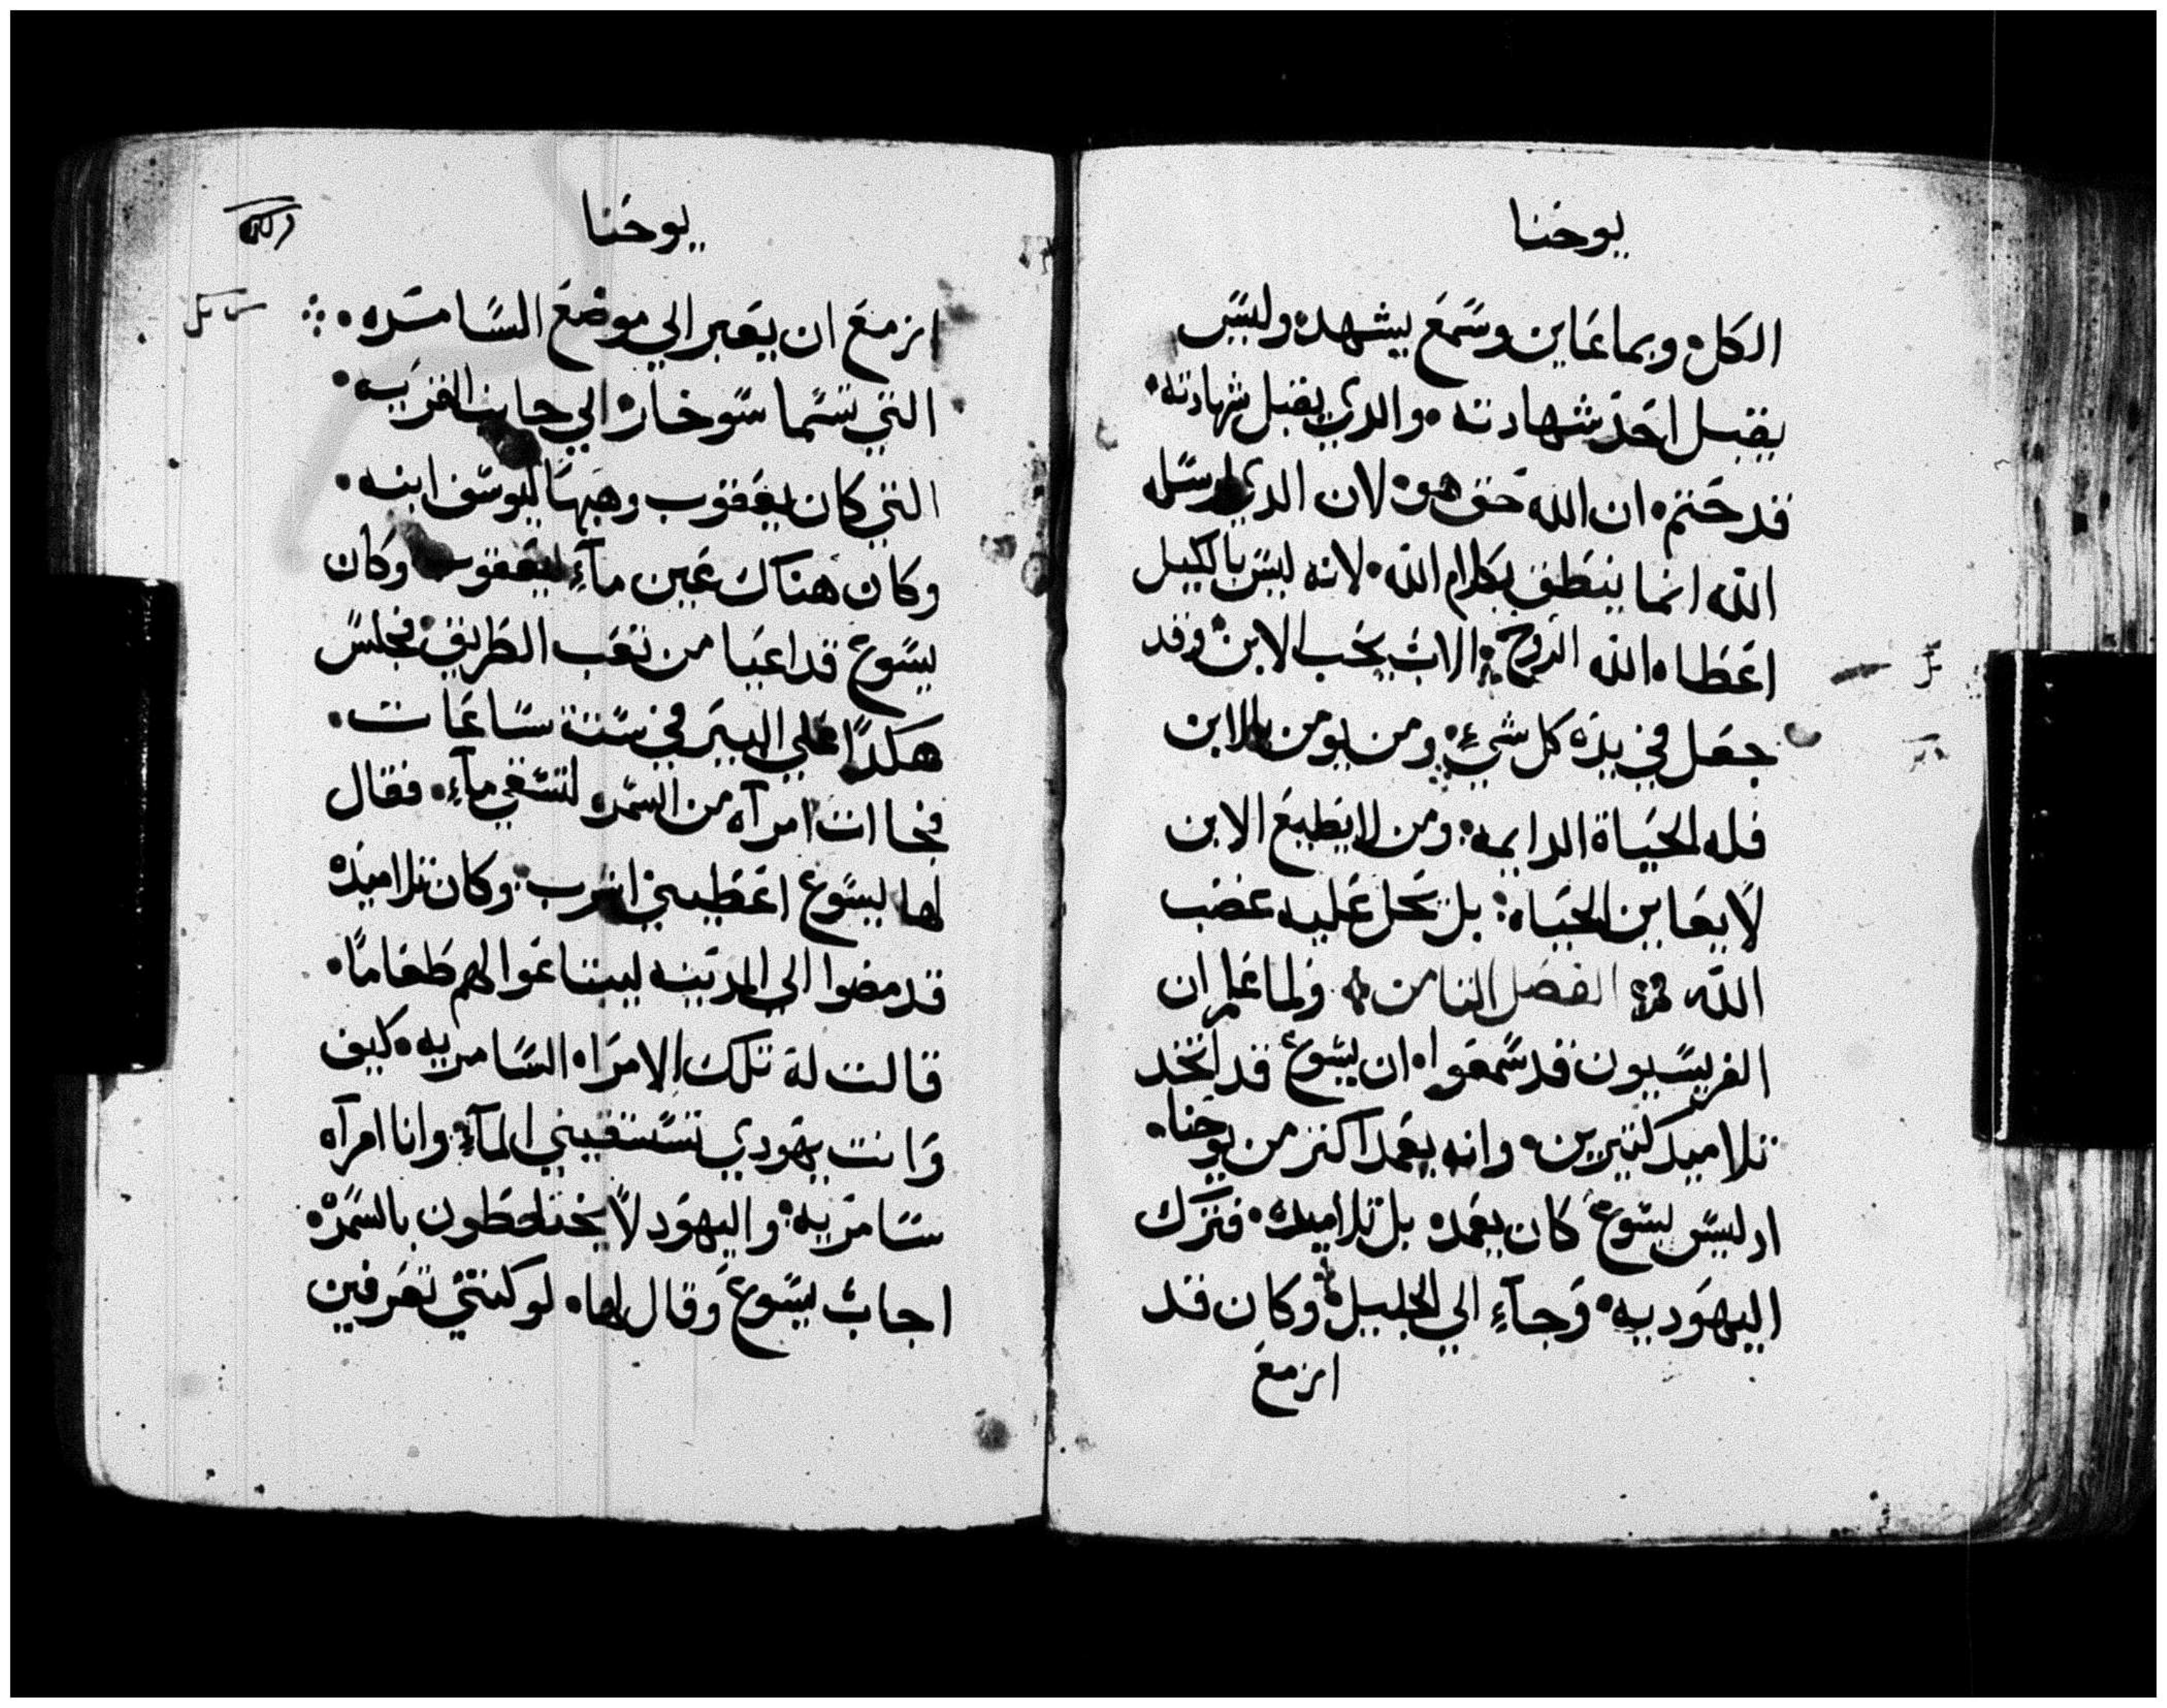 يوحنا
الكل وبما عاين وسمع يشهد وليس
يقبل احد شهادته والدي يقبل شهادته
قد ختم ان الله حق هو لان الدي ارسله
الله انما ينطق بكلام الله لانه ليس بالكيل
اعطاه الله الروح الاب يحب الابن وقد
جعل في يده كل شيء ومن يومن بالابن
فله الحياة الدايمه ومن لا يطيع الابن
لا يعاين الحياه بل تحل عليه غضب
الله الفصل الثامن ولما علم ان
الفريسيون قد سمعوا ان يسوع قد اتخد
تلاميد كتيرين وانه يعمد اكتر من يوحنا
اد ليس يسوع كان يعمد بل تلاميده فترك
اليهوديه وجآء الي الجليل وكان قد
ازمع
يوحنا
ازمع ان يعبر الي موضع السامره
التي تسما سوخار الي جانب القريه
التي كان يعقوب وهبها ليوسف ابنه
وكان هناك عين مآء ليعقوب وكان
يسوع قد اعيا من تعب الطريق فجلس
هكدا علي البير في ستة ساعات
فجاات امرآه من السمره لتستقي مآء فقال
لها يسوع اعطيني اشرب وكان تلاميده
قد مضوا الي المدينه ليبتاعوا لهم طعاما
قالت له تلك الامراه السامريه كيف
وانت يهودي تستسقيني المآء وانا امرآه
سامريه واليهود لا يختلطون بالسمره
اجاب يسوع وقال لها لو كنتي تعرفين